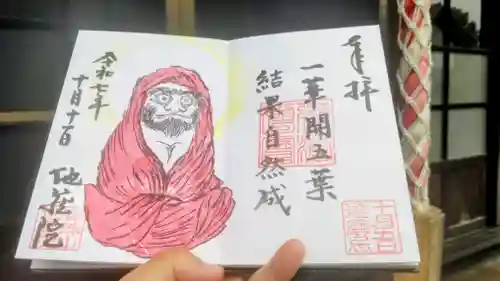 奉拝
一華開五葉
結果自然成
令和七年
十月十日
地蔵院